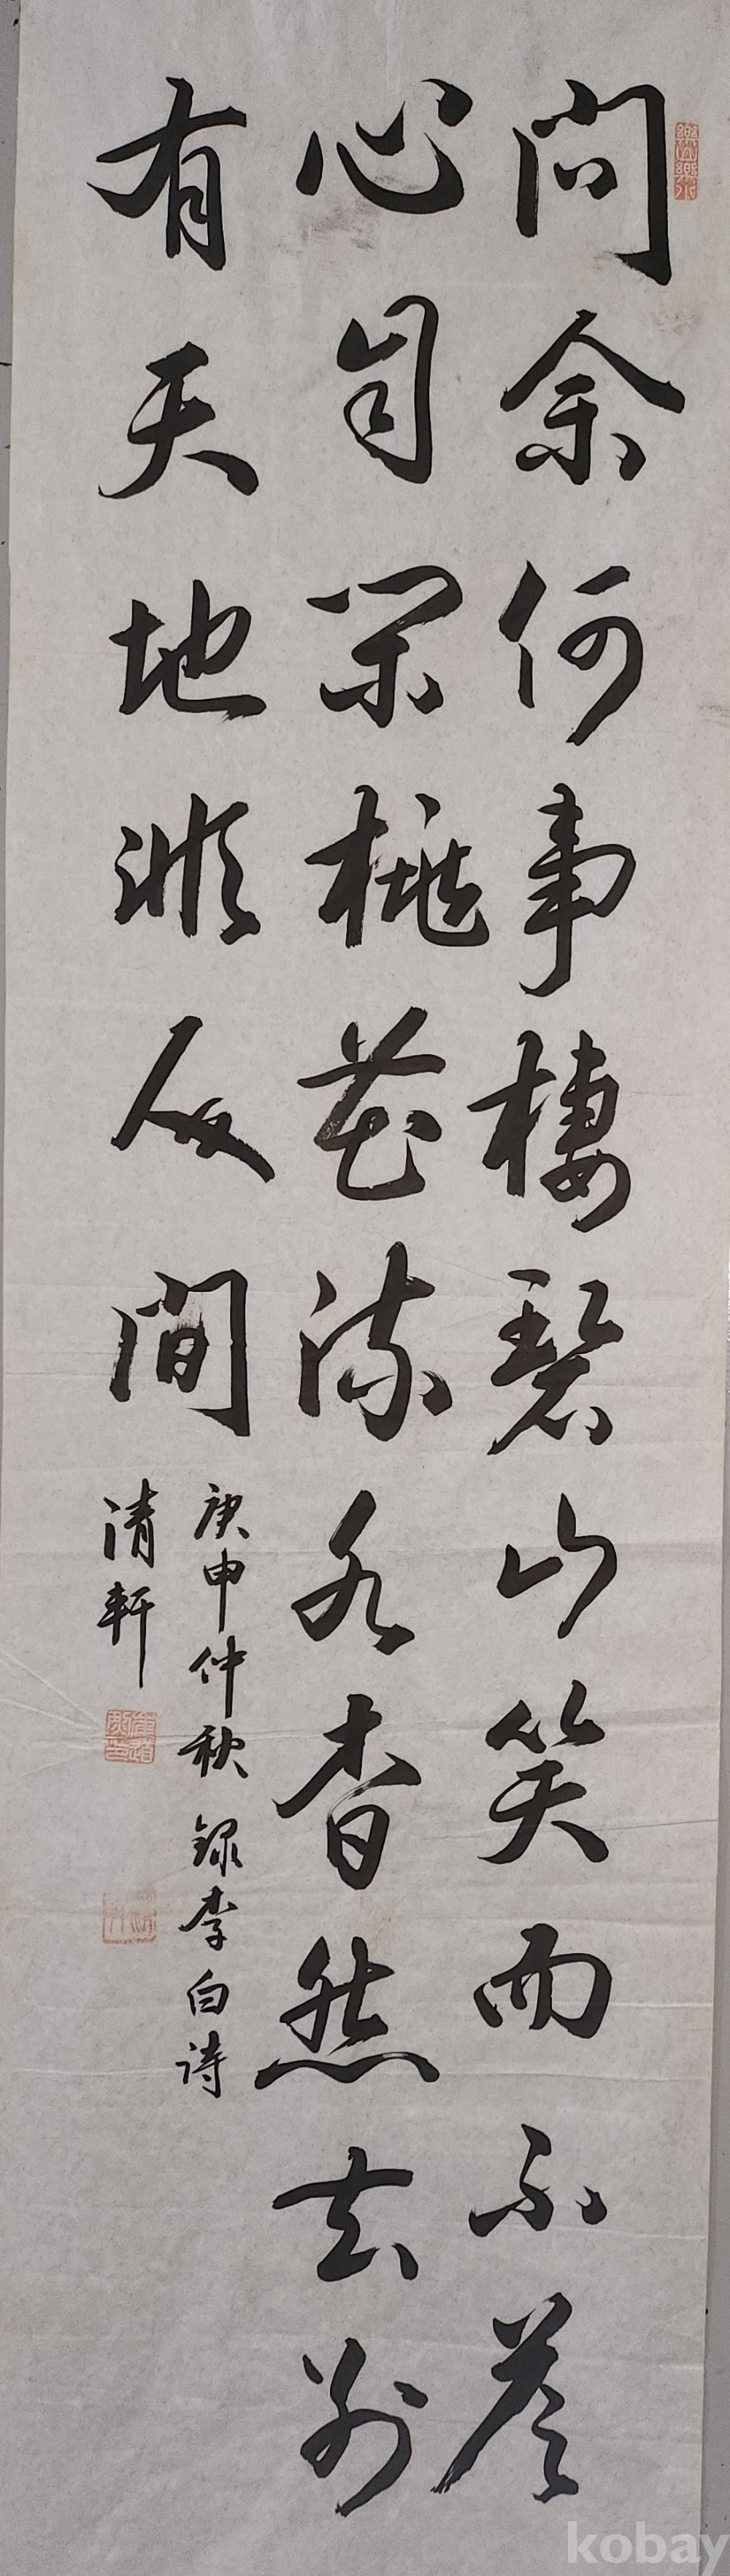 樂山樂水
問余何事棲碧山笑而不答
心自閑桃花流水杳然去別
有天地非人間
庚申仲秋 錄李白詩
清軒
kobay